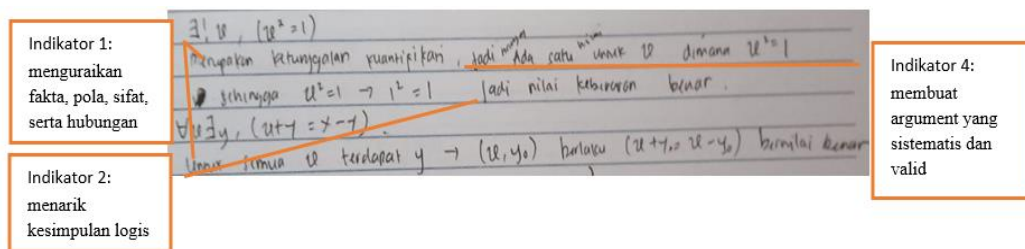 Indikator 1:
menguraikan
fakta, pola, sifat,
serta hubungan
Indikator 2:
menarik
kesimpulan logis
∃! x, (x² = 1)
merupakan ketunggalan kuantifikasi, Jadi Ada satu untuk x dimana x² = 1
sehingga x² = 1 → 1² = 1 Jadi nilai kebenaran benar.
∀x ∃y, (x+y = x-y).
Untuk semua x terdapat y → (x, y₀) berlaku (x+y₀ = x-y₀) bernilai benar
Indikator 4:
membuat
argument yang
sistematis dan
valid